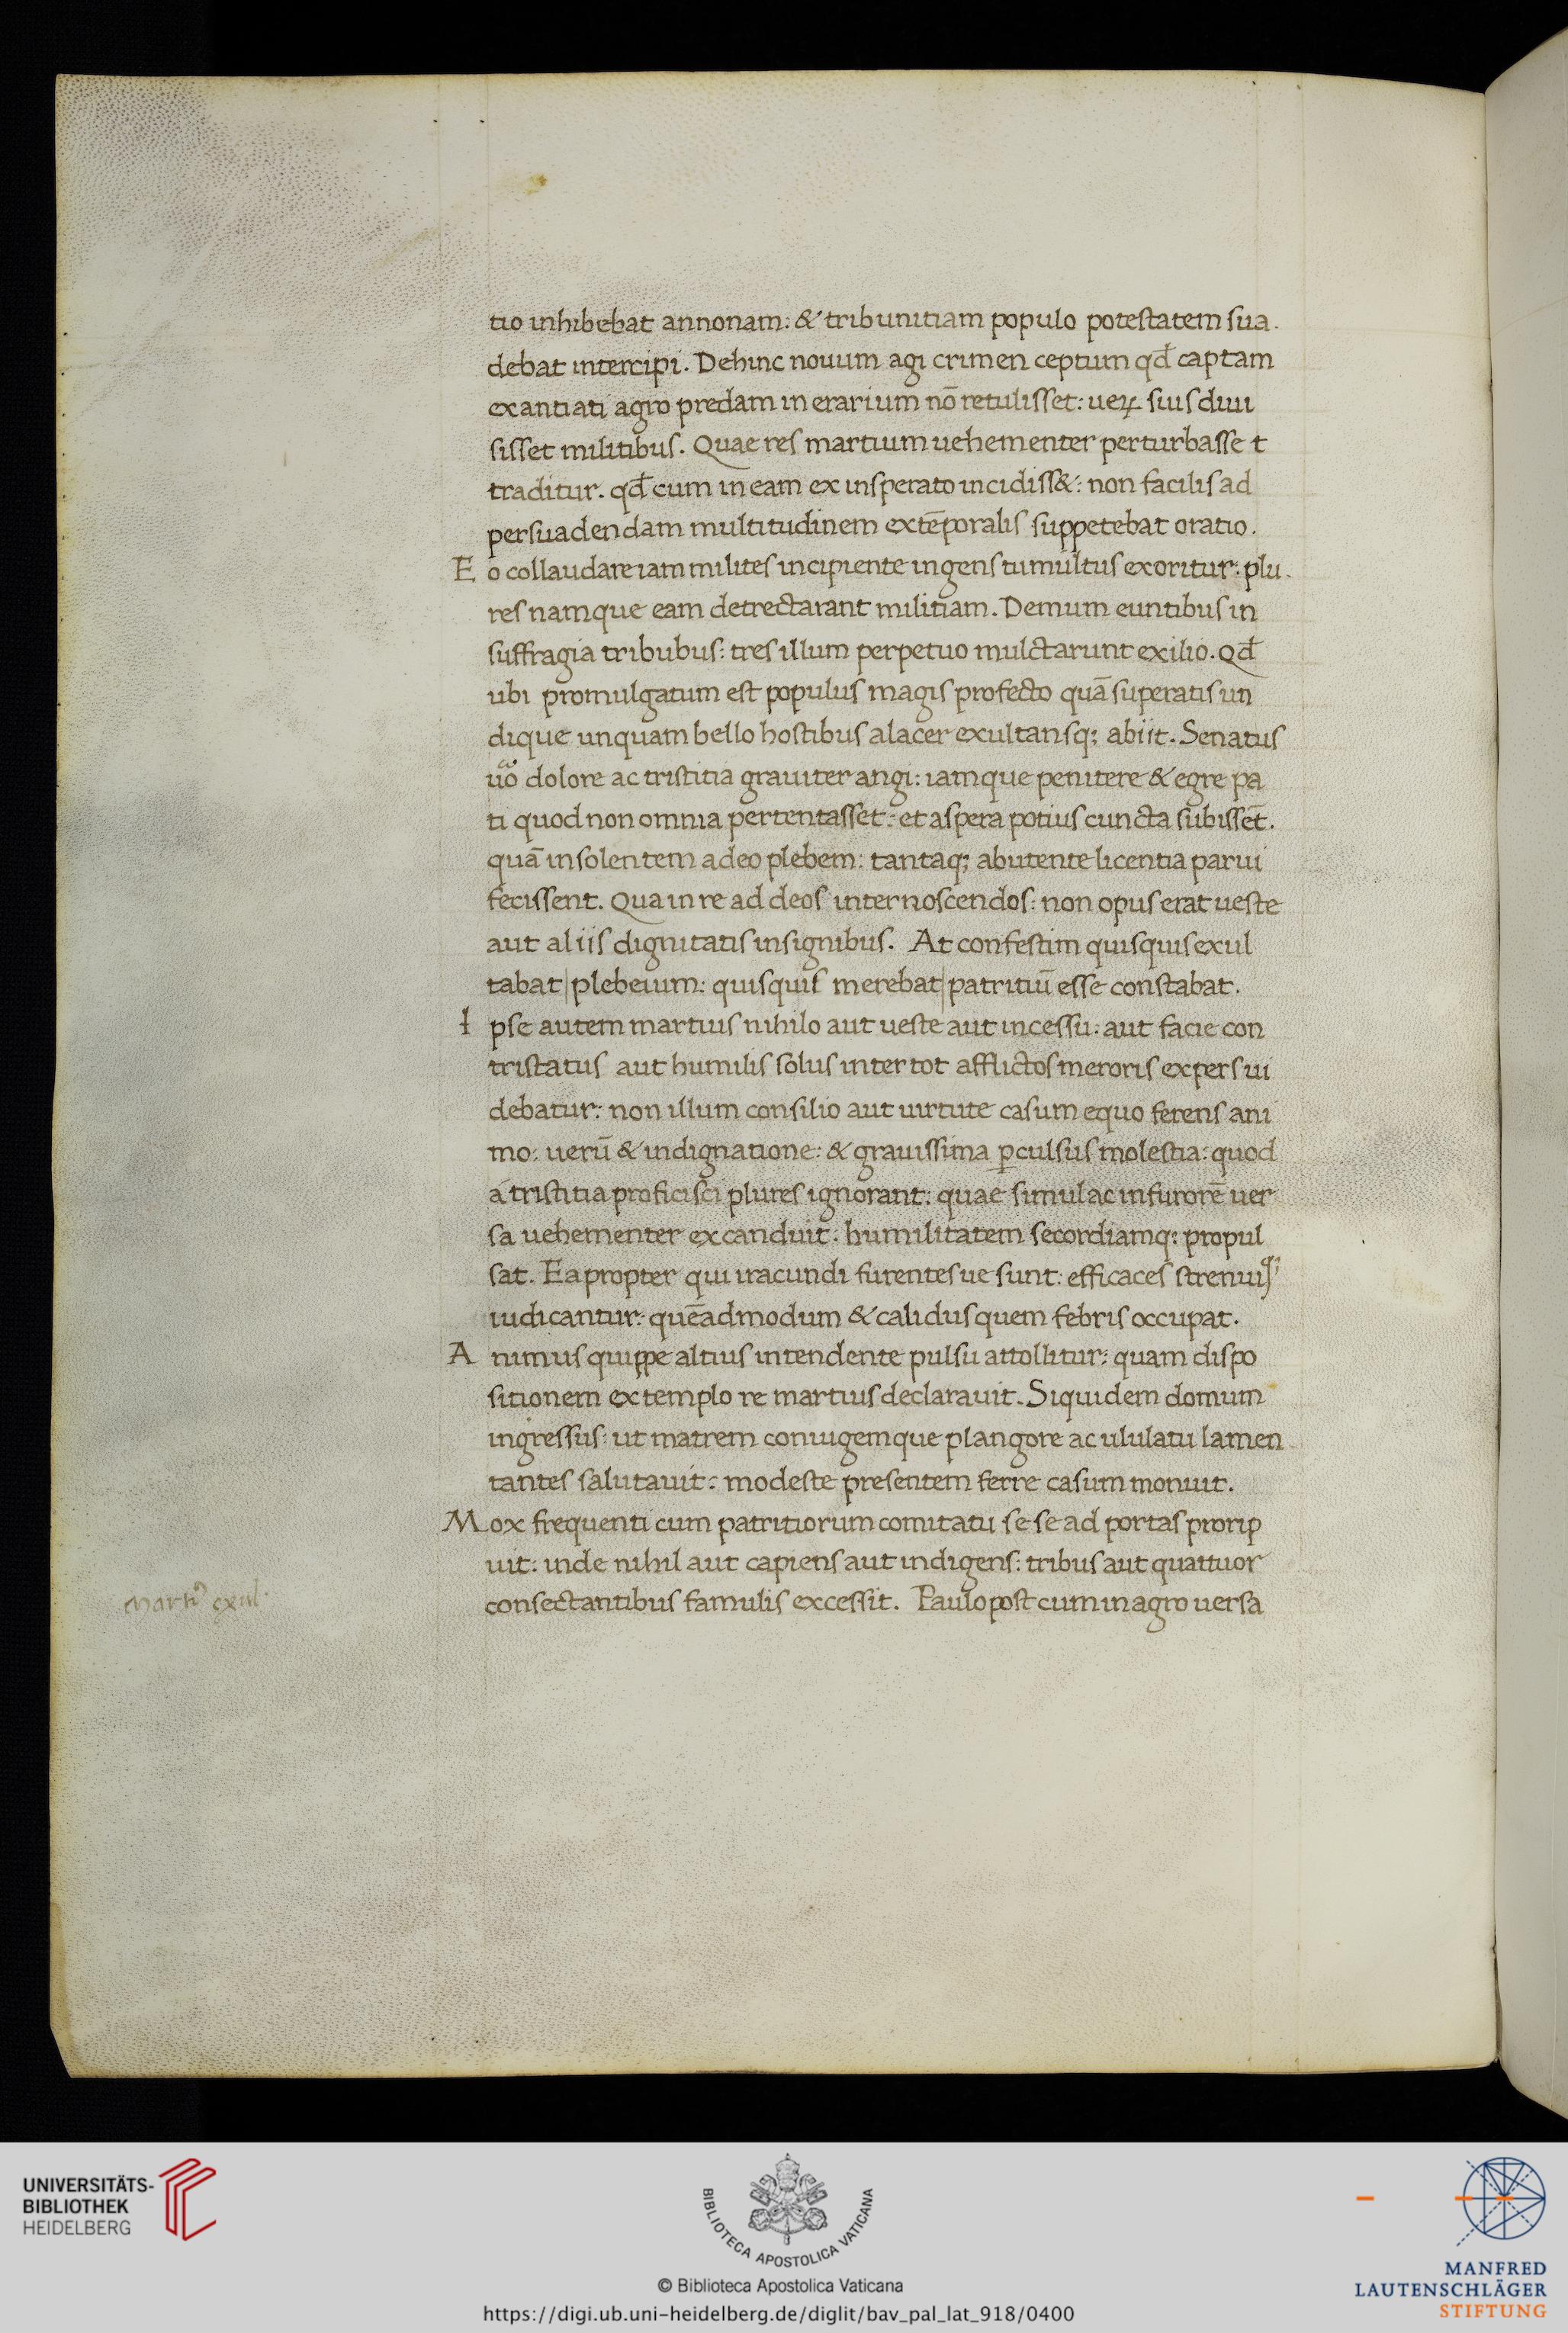 tio inhibebat annonam: & tribunitiam populo potestatem sua.
debat intercipi. Dehinc nouum agi crimen ceptum qđ captam
ex antiati agro predam in erarium nō retulisset: ueꝝ suis diui
sisset militibus. Quae res martium uehementer perturbasse t
traditur. qđ cum in eam ex insperato incidiss&: non facilis ad
persuadendam multitudinem extēporalis suppetebat oratio.
Eo collaudare iam milites incipiente ingens tumultus exoritur: plu.
res namque eam detrectarant militiam. Demum euntibus in
suffragia tribubus: tres illum perpetuo mulctarunt exilio. Qđ
ubi promulgatum est populus magis profecto quā superatis un
dique unquam bello hostibus alacer exultansq; abiit. Senatus
uoᷓ dolore ac tristitia grauiter angi: iamque penitere & egre pa
ti quod non omnia pertentasset: et aspera potius cuncta subissēt.
quā insolentem adeo plebem: tantaq; abutente licentia parui
fecissent. Qua in re ad deos internoscendos: non opus erat ueste
aut aliis dignitatis insignibus. At confestim quisquis exul
tabat | plebeium: quisquis merebat | patritiū esse constabat.
Ipse autem martius nihilo aut ueste aut incessu: aut facie con
tristatus aut humilis solus inter tot afflictos meroris expers ui
debatur: non illum consilio aut uirtute casum equo ferens ani
mo: uerū & indignatione: & grauissima ꝑculsus molestia: quod
a tristitia proficisci plures ignorant: quae simul ac in furorē uer
sa uehementer excanduit: humilitatem secordiamq; propul
sat. Ea propter qui iracundi furentesue sunt: efficaces strenuiq;
iudicantur: quēadmodum & calidus quem febris occupat.
Animus quippe altius intendente pulsu attollitur: quam dispo
sitionem extemplo re martius declarauit. Siquidem domum
ingressus: ut matrem coniugemque plangore ac ululatu lamen
tantes salutauit: modeste presentem ferre casum monuit.
Mox frequenti cum patritiorum comitatu se se ad portas prorip
uit: inde nihil aut capiens aut indigens: tribus aut quattuor
consectantibus famulis excessit. Paulo post cum in agro uersa
Martiꝰ exul
UNIVERSITÄTS-
BIBLIOTHEK
HEIDELBERG
BIBLIOTECA APOSTOLICA VATICANA
© Biblioteca Apostolica Vaticana
https://digi.ub.uni-heidelberg.de/diglit/bav_pal_lat_918/0400
MANFRED
LAUTENSCHLÄGER
STIFTUNG